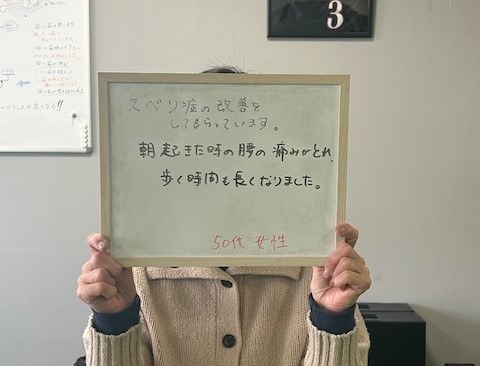 3
スベリ症の改善を
してもらっています。
朝起きた時の腰の痛みがとれ、
歩く時間も長くなりました。
50代 女性